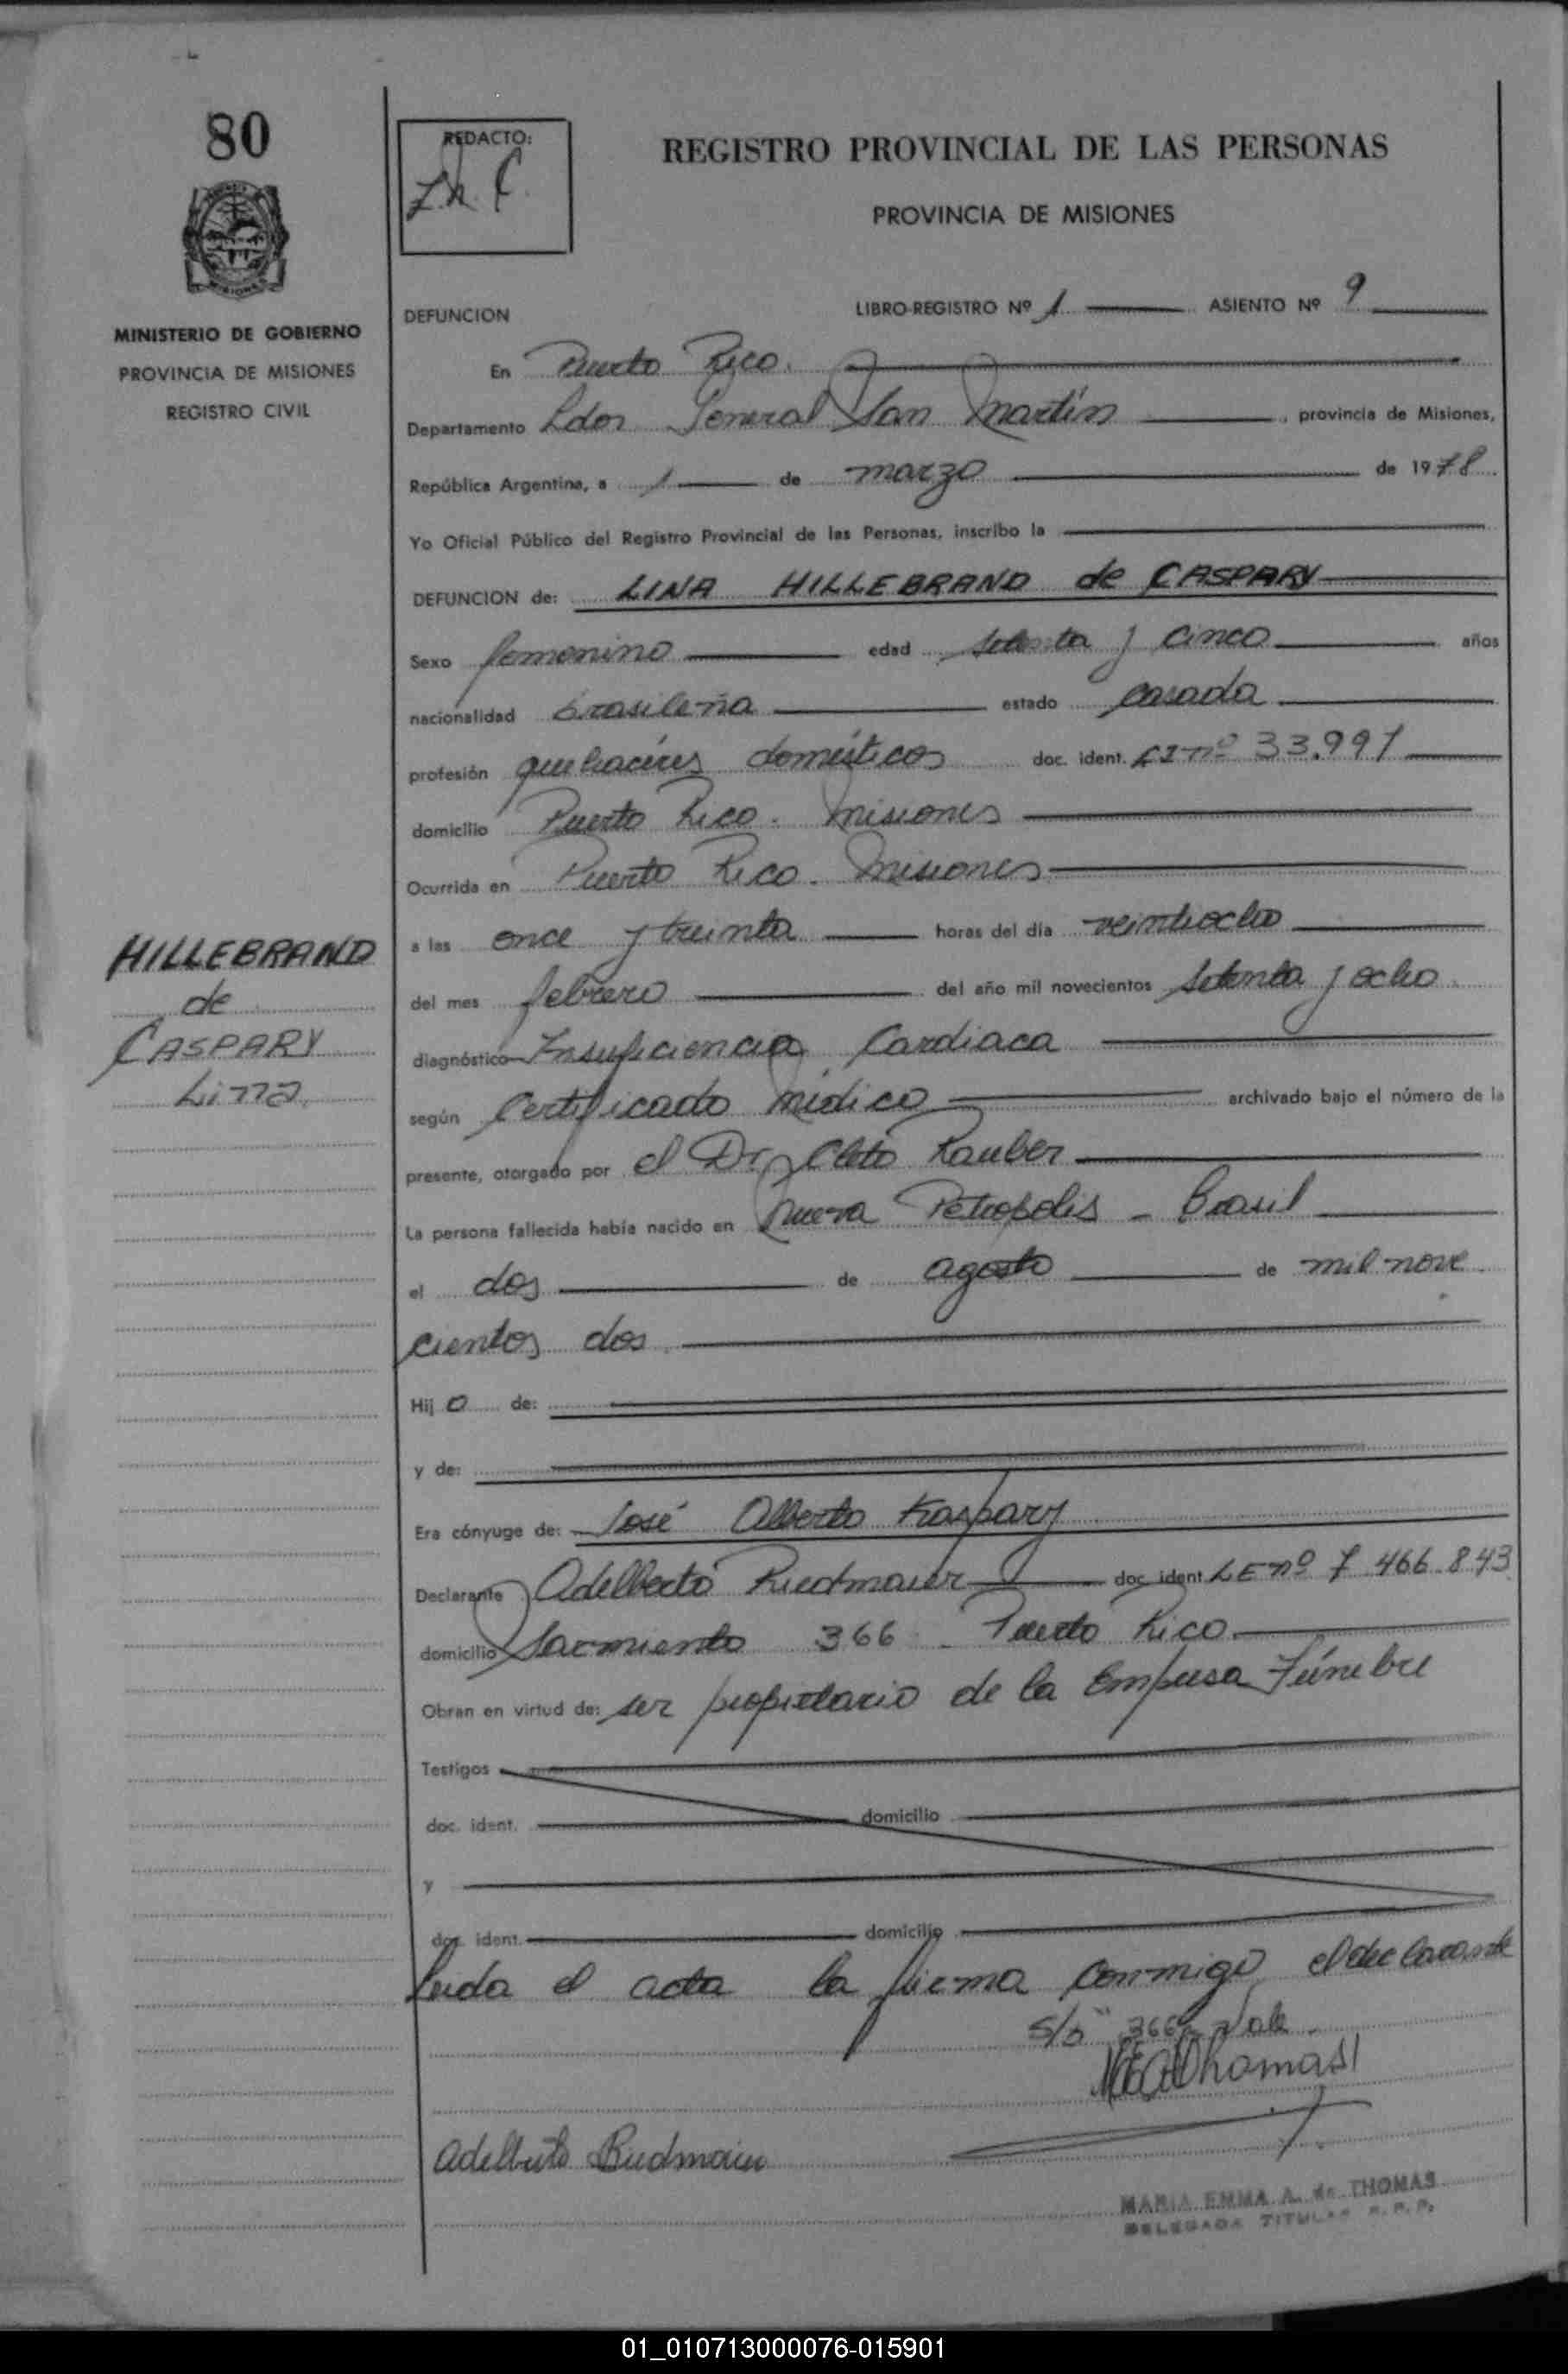 80
REDACTO:
REGISTRO PROVINCIAL DE LAS PERSONAS
PROVINCIA DE MISIONES
MISIONES
MINISTERIO DE GOBIERNO
PROVINCIA DE MISIONES
REGISTRO CIVIL
DEFUNCION
LIBRO-REGISTRO Nº 1 ASIENTO Nº 9
En Puerto Rico.
Departamento Ldor General San Martín, provincia de Misiones,
República Argentina, a 1 de marzo de 1978
Yo Oficial Público del Registro Provincial de las Personas, inscribo la
DEFUNCION de: LINA HILLEBRAND de CASPARY
Sexo femenino edad setenta y cinco años
nacionalidad brasileña estado casada
profesión quehaceres domésticos doc. ident. CI nº 33.991
domicilio Puerto Rico. Misiones
Ocurrida en Puerto Rico. Misiones
a las once y treinta horas del día veintiocho
del mes febrero del año mil novecientos setenta y ocho
diagnóstico Insuficiencia Cardiaca
según Certificado médico archivado bajo el número de la
presente, otorgado por el Dr. Cleto Rauber
La persona fallecida había nacido en Nueva Petropolis - Brasil
el dos de agosto de mil nove
cientos dos.
Hij o de:
y de:
Era cónyuge de: José Alberto Kaspary
Declarante Adelberto Riedmaier doc. ident LE nº 7 466.843
domicilio Sarmiento 366 Puerto Rico.
Obran en virtud de: ser propietario de la Empresa Fúnebre
Testigos
doc. ident. domicilio
y
doc. ident. domicilio
Leida el acta la firma conmigo el declarante
S/b "366" Vale.
Adelberto Riedmaier
MARIA EMMA A. de THOMAS
DELEGADA TITULAR R.P.P.
HILLEBRAND
de
CASPARY
Lina.
01_010713000076-015901